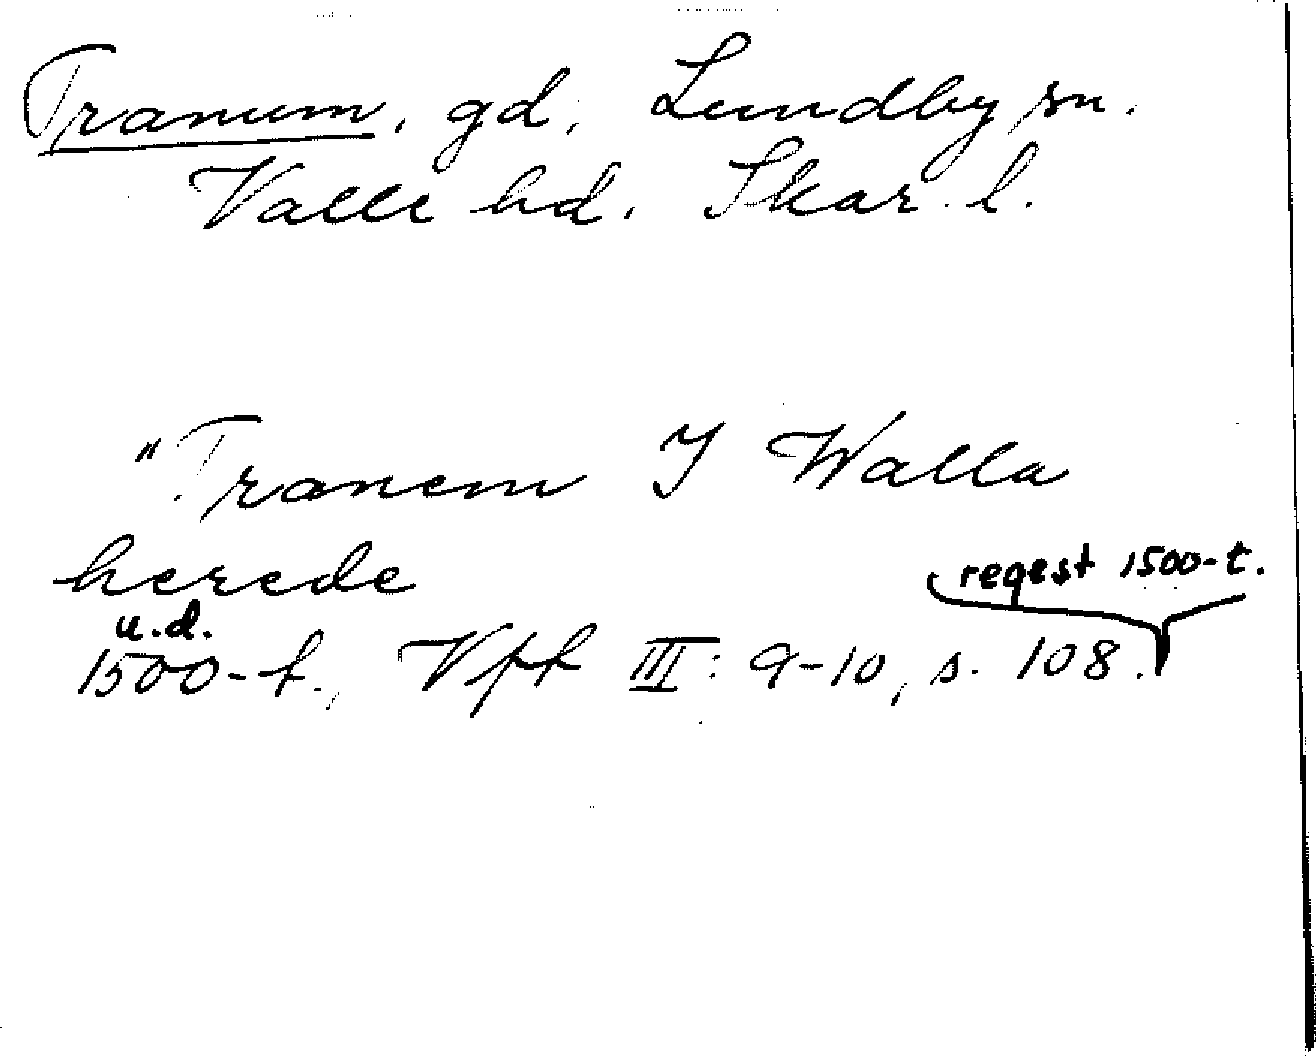 Tranum, gd, Lundby sn.
Valle hd, Skar. l.
"Tranem I Walla
herede
u.d.
1500-t., Vff III: 9-10, s. 108.
regest 1500-t.